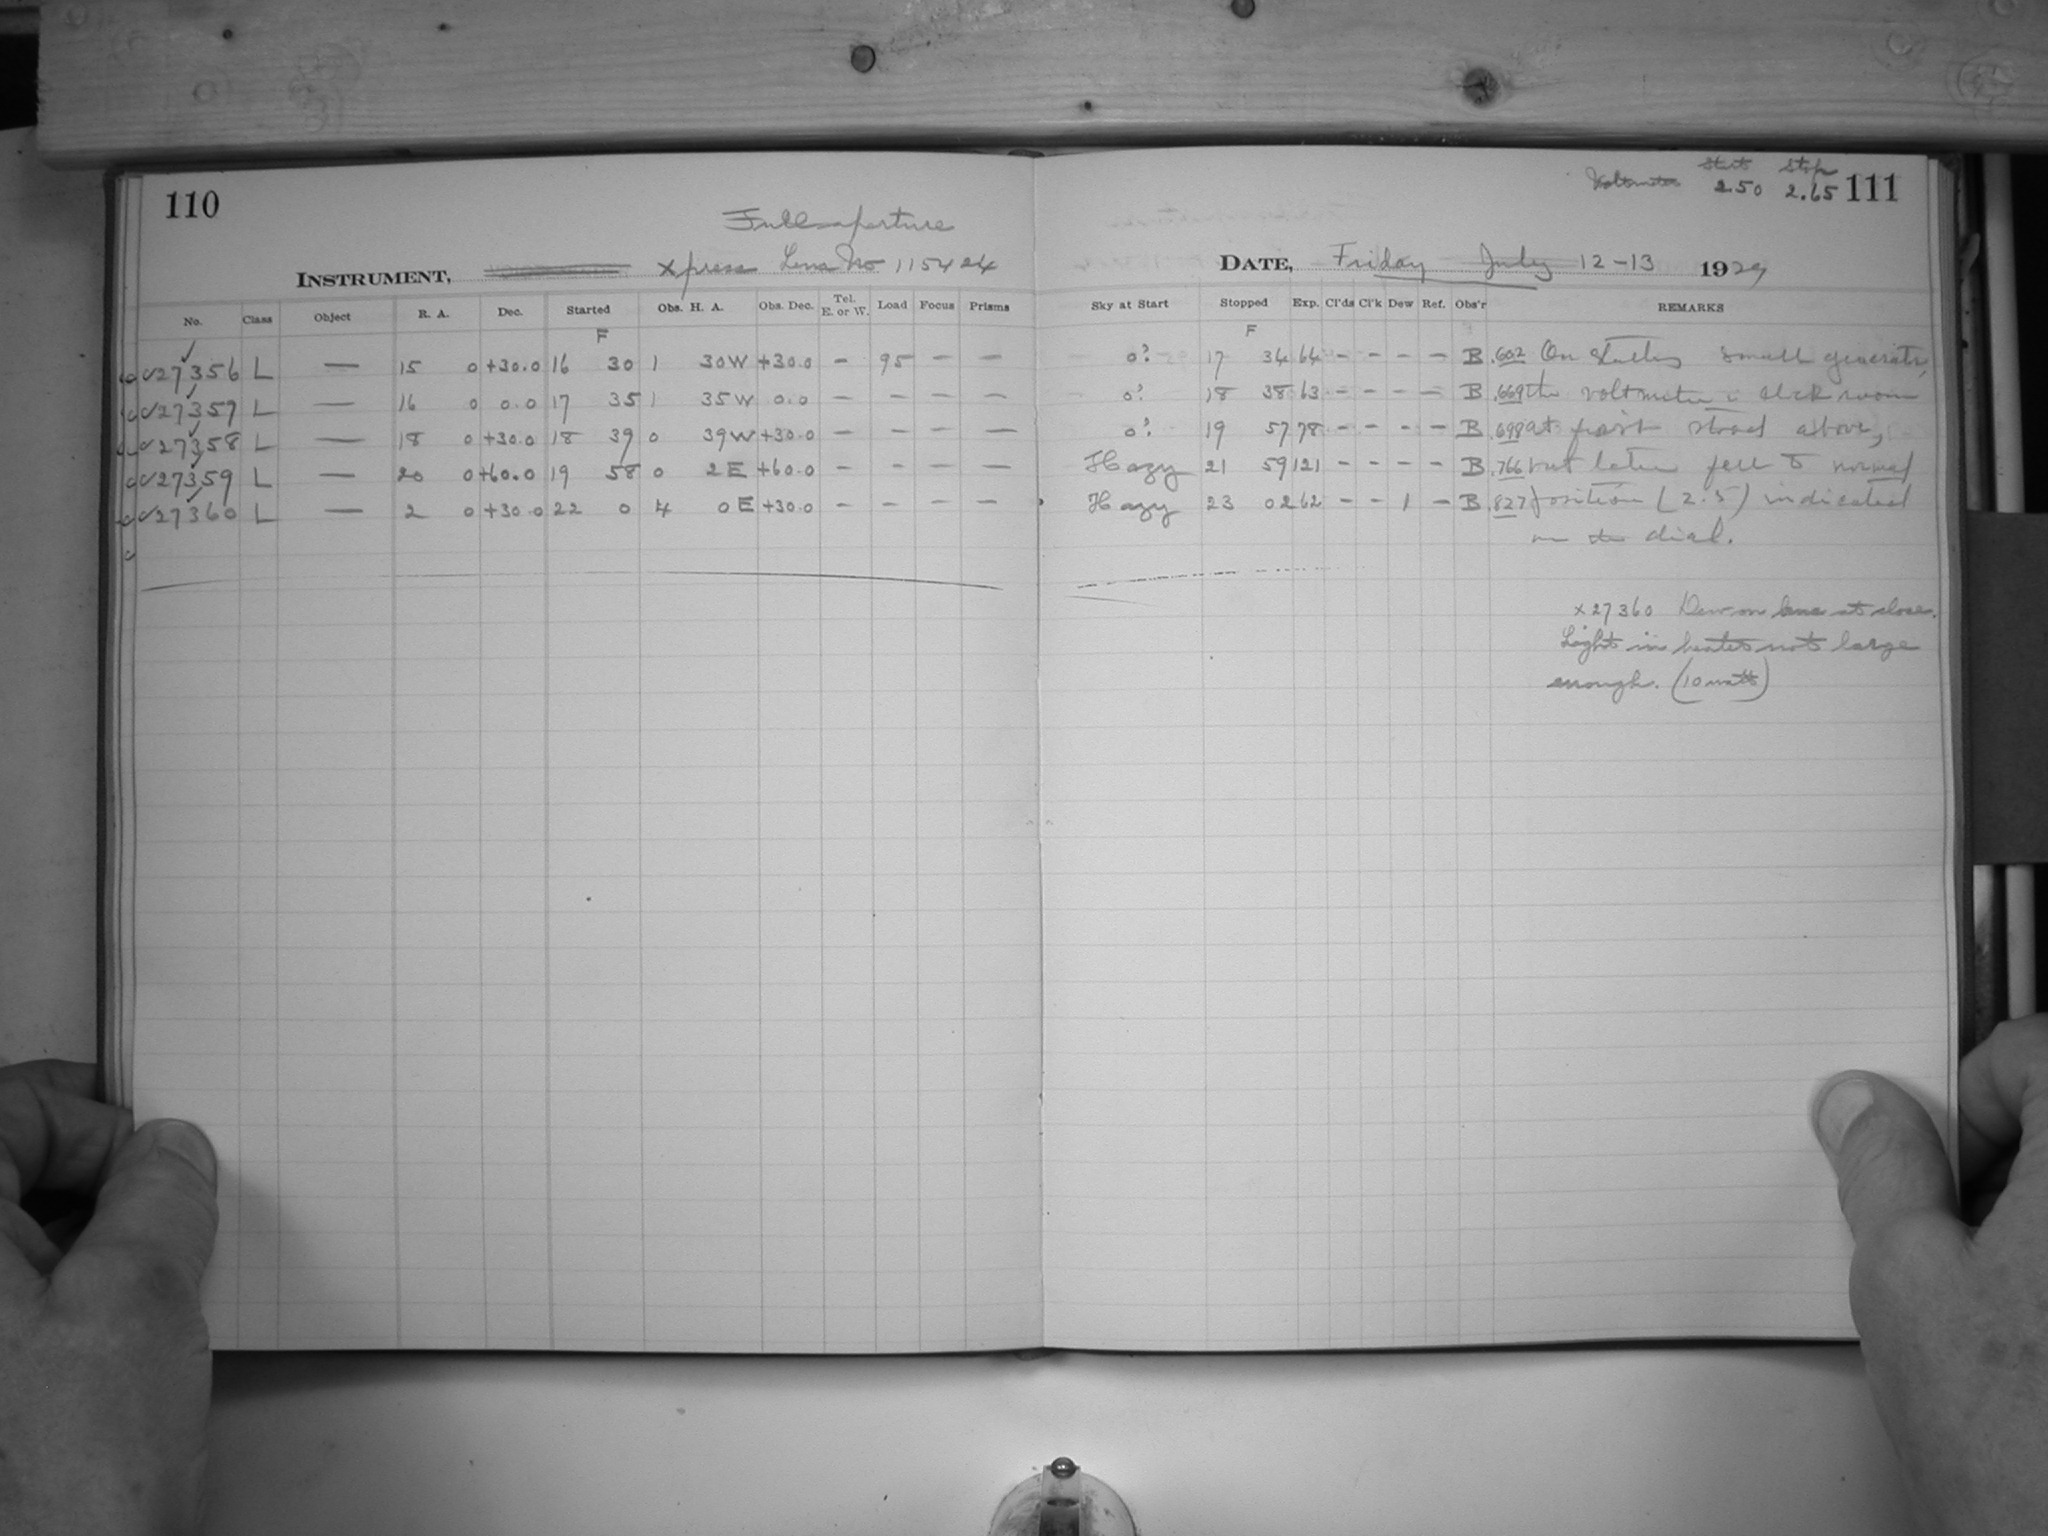 110
Full aperture
INSTRUMENT, Xpress Lens No 115424
No. Class Object R. A. Dec. Started Obs. H. A. Obs. Dec. Tel. E. or W. Load Focus Prisms
F
27356 L — 15 0 +30.0 16 30 1 30 W +30.0 – 95 – –
27357 L — 16 0 0.0 17 35 1 35 W 0.0 – – – –
27358 L — 18 0 +30.0 18 39 0 39 W +30.0 – – – –
27359 L — 20 0 +60.0 19 58 0 2 E +60.0 – – – –
27360 L — 2 0 +30.0 22 0 4 0 E +30.0 – –
Start Stop
Voltmeter 2.50 2.65 111
DATE, Friday July 12-13 1929
Sky at Start Stopped Exp. Cl'ds Cl'k Dew Ref. Obs'r REMARKS
F
0? 17 34 64 – – – – B .602 On starting small generator,
0? 18 38 63 – – – – B .669 the voltmeter in clock room
0? 19 57 78 – – – – B .698 at first stood above,
Hazy 21 59 121 – – – – B .766 but later fell to normal
Hazy 23 02 62 – – 1 – B .827 position (2.5) indicated
on the dial.
x27360 Dew on lens at close.
Light in heater not large
enough. (10 watt)